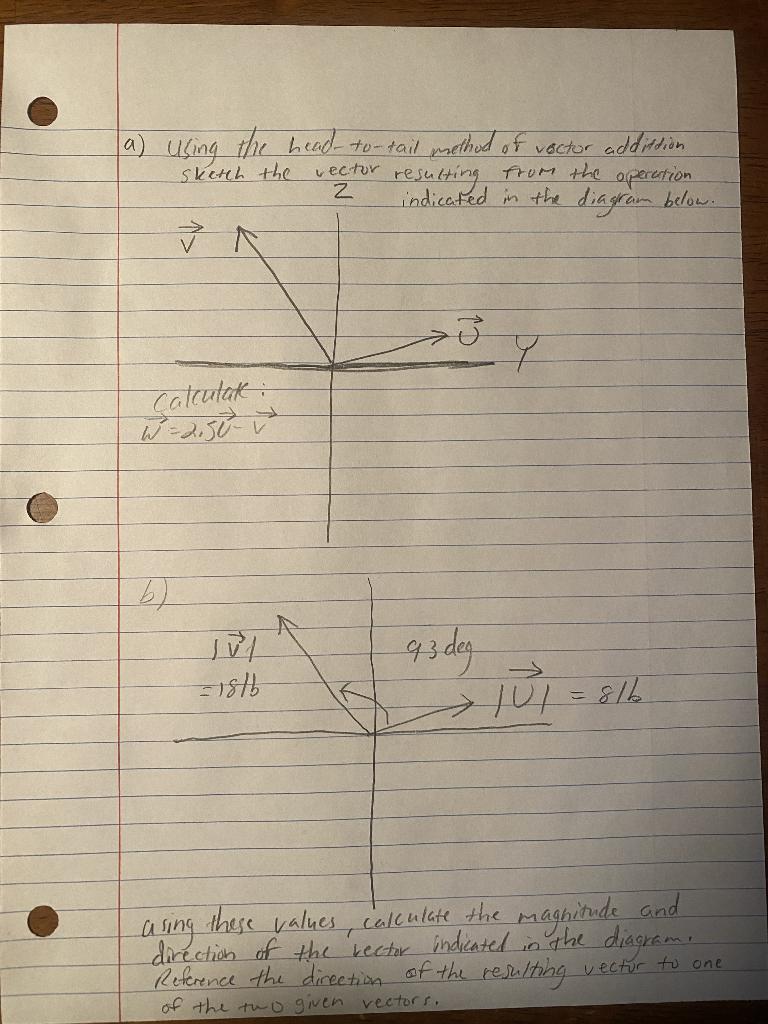 a) Using the head-to-tail method of vector addittion
sketch the vector resulting from the operation
Z indicated in the diagram below.
V
U
Y
Calculate:
W = 2.5U - V
b)
93 deg
|V|
= 18lb
|U| = 8lb
using these values, calculate the magnitude and
direction of the vector indicated in the diagram.
Reference the direction of the resulting vector to one
of the two given vectors.